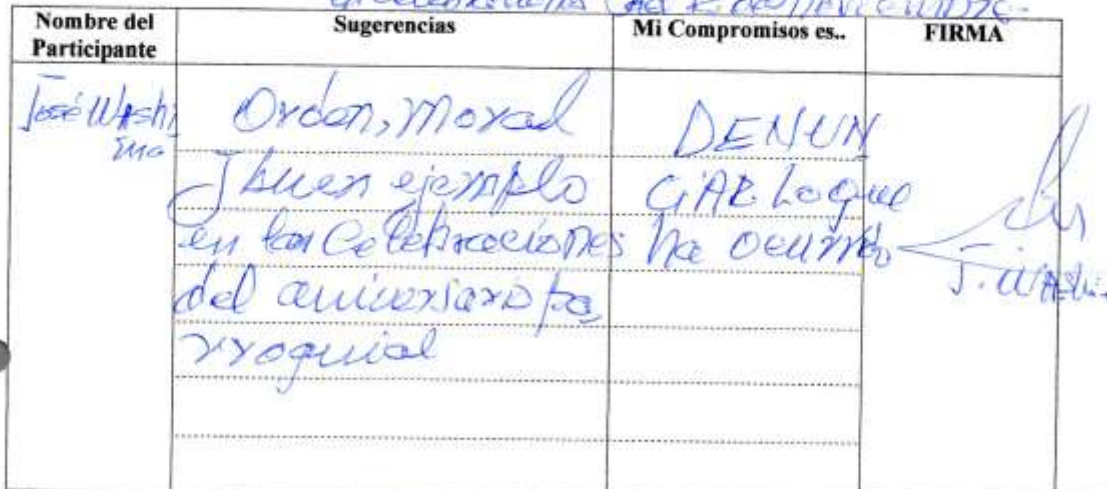 Nombre del Participante
Sugerencias
Mi Compromisos es..
FIRMA
José Washi
ma
Orden, Moral
y buen ejemplo
en las Celebraciones
del aniversario pa
rroquial
DENUN
CIAR Lo que
ha ocurrido
J. Washi